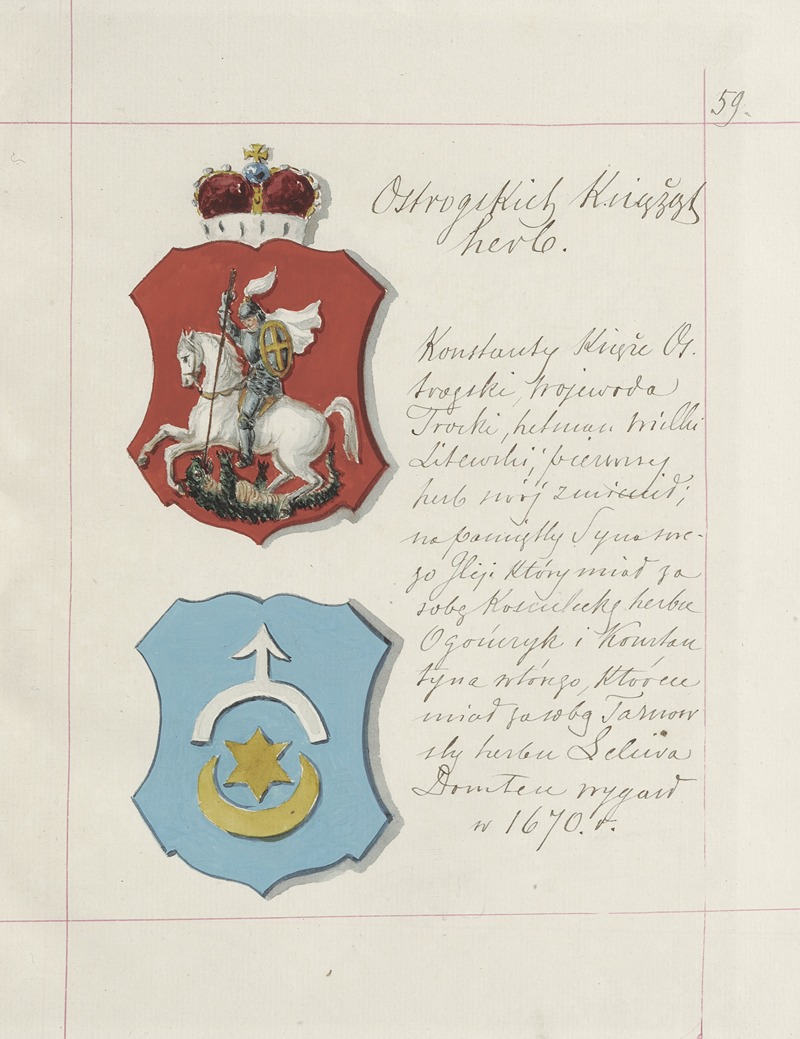 59.
Ostrogskich Książąt
herb.
Konstanty Książe Os.
trogski, Wojewoda
Trocki, hetman Wielki
Litewski, pierwszy
herb swój zmienił;
na pamiątkę Syna swe-
go Ilji który miał za
sobą Kościelecką herbu
Ogończyk i Konstan
tyna wtórego, który
miał za sobą Tarnow
ską herbu Leliwa
Dom ten wygasł
w 1670. r.